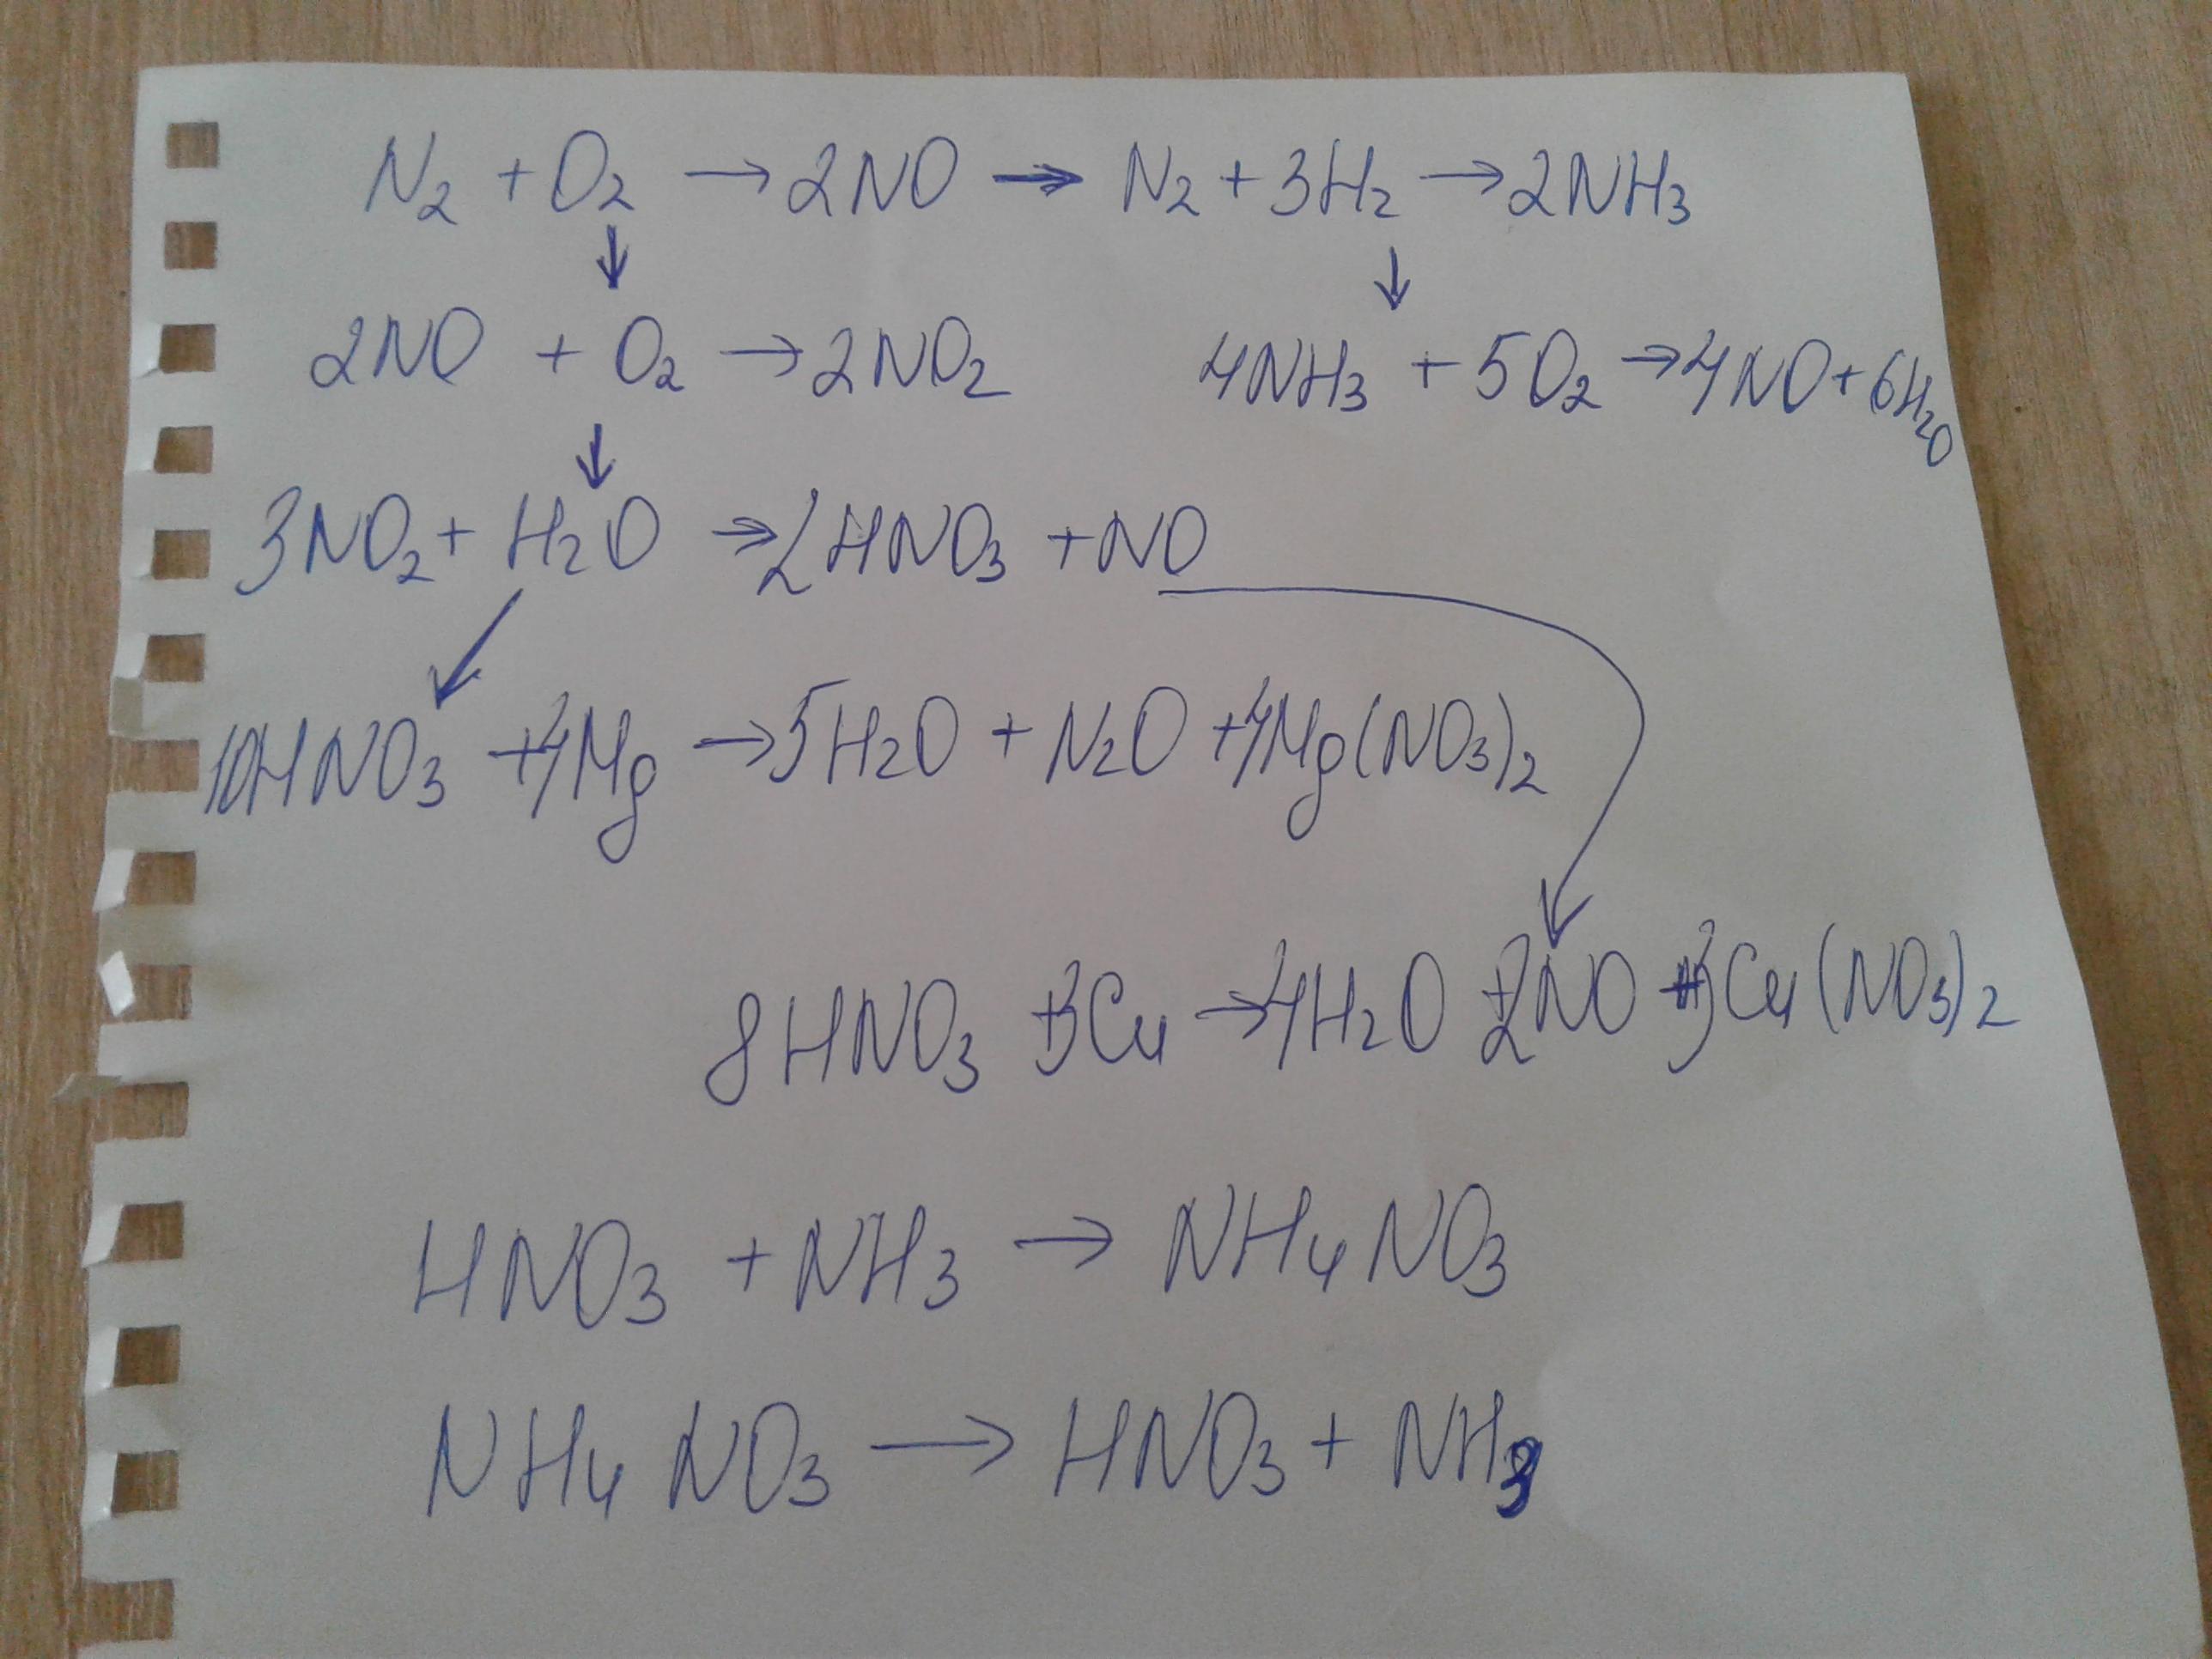 N2 + O2 → 2NO → N2 + 3H2 → 2NH3
↓ ↓
2NO + O2 → 2NO2 4NH3 + 5O2 → 4NO + 6H2O
↓
3NO2 + H2O → 2HNO3 + NO
10HNO3 + 4Mg → 5H2O + N2O + 4Mg(NO3)2
8HNO3 + 3Cu → 4H2O + 2NO + 3Cu(NO3)2
HNO3 + NH3 → NH4NO3
NH4NO3 → HNO3 + NH3